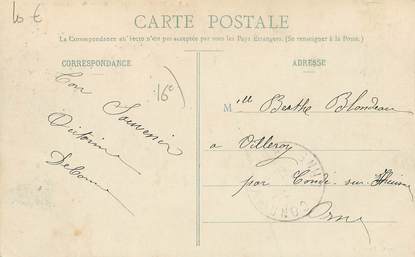 10 €
CARTE POSTALE
La Correspondance au recto n'est pas acceptée par tous les Pays Étrangers. (Se renseigner à la Poste.)
CORRESPONDANCE
ADRESSE
16e
Bon Souvenir
Victorine
Mlle Berthe Blondeau
a Villeroy
par Condé-sur-Huisne
Orne